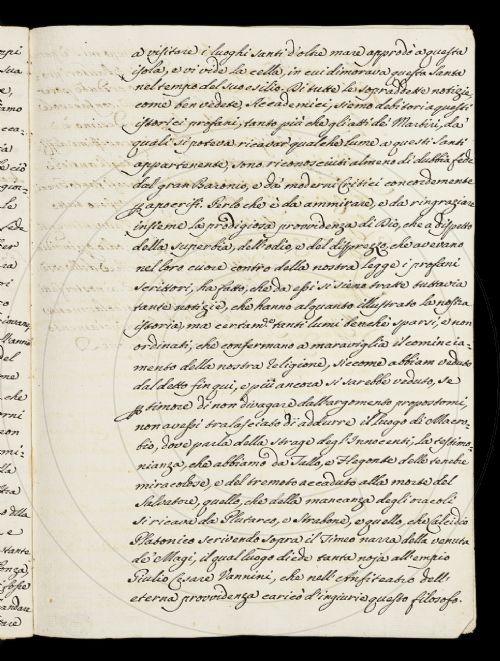 a visitare i luoghi santi d'oltre mare approdò a questa
isola, e vi vide la cella, in cui dimorava questa Santa
nel tempo del suo esilio. Di tutte le sopraddette notizie,
come ben vedete, Accademici, siamo debitori a questi
istorici profani, tanto più che gli atti de' Martiri, da'
quali si poteva ricavar qualche lume a questi Santi
appartenente, sono riconosciuti almeno di dubbia fede
dal gran Baronio, e da' moderni Critici concordemente
p apocrifi. Perlochè è da ammirare, e da ringraziare
insieme la prodigiosa provvidenza di Dio, che a dispetto
della superbia, dell'odio, e del disprezzo, che avevano
nel loro cuore contro della nostra legge i profani
scrittori, ha fatto, che da essi si siano tratte tuttavia
tante notizie, che hanno alquanto illustrato la nostra
istoria, ma certam.te tanti lumi benchè sparsi, e non
ordinati, che confermano a maraviglia il comincia-
mento della nostra Religione, siccome abbiam veduto
dal detto fin qui, e più ancora si sarebbe veduto, se
p timore di non divagare dall'argomento propostomi,
non avessi tralasciato di addurre il luogo di Macro-
bio, dove parla della strage degl'Innocenti, la testimo-
nianza, che abbiamo da Tallo, e Flegonte delle tenebre
miracolose, e del tremoto accaduto alla morte del
Salvatore, quello, che della mancanza degli oracoli
si ricava da Plutarco, e Strabone, e quello, che Calcidio
Platonico scrivendo sopra il Timeo narra della venuta
de' Magi, il qual luogo diede tanta noja all'empio
Giulio Cesare Vannini, che nell'Anfiteatro dell'
eterna provvidenza caricò d'ingiurie questo filosofo.